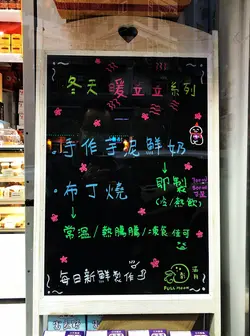 冬天暖立立系列
·手作芋泥鮮奶
→即製
(冷/熱飲)
·布丁燒
→常溫/熱騰騰/凍食佳可
~每日新鮮製作
FULL moon